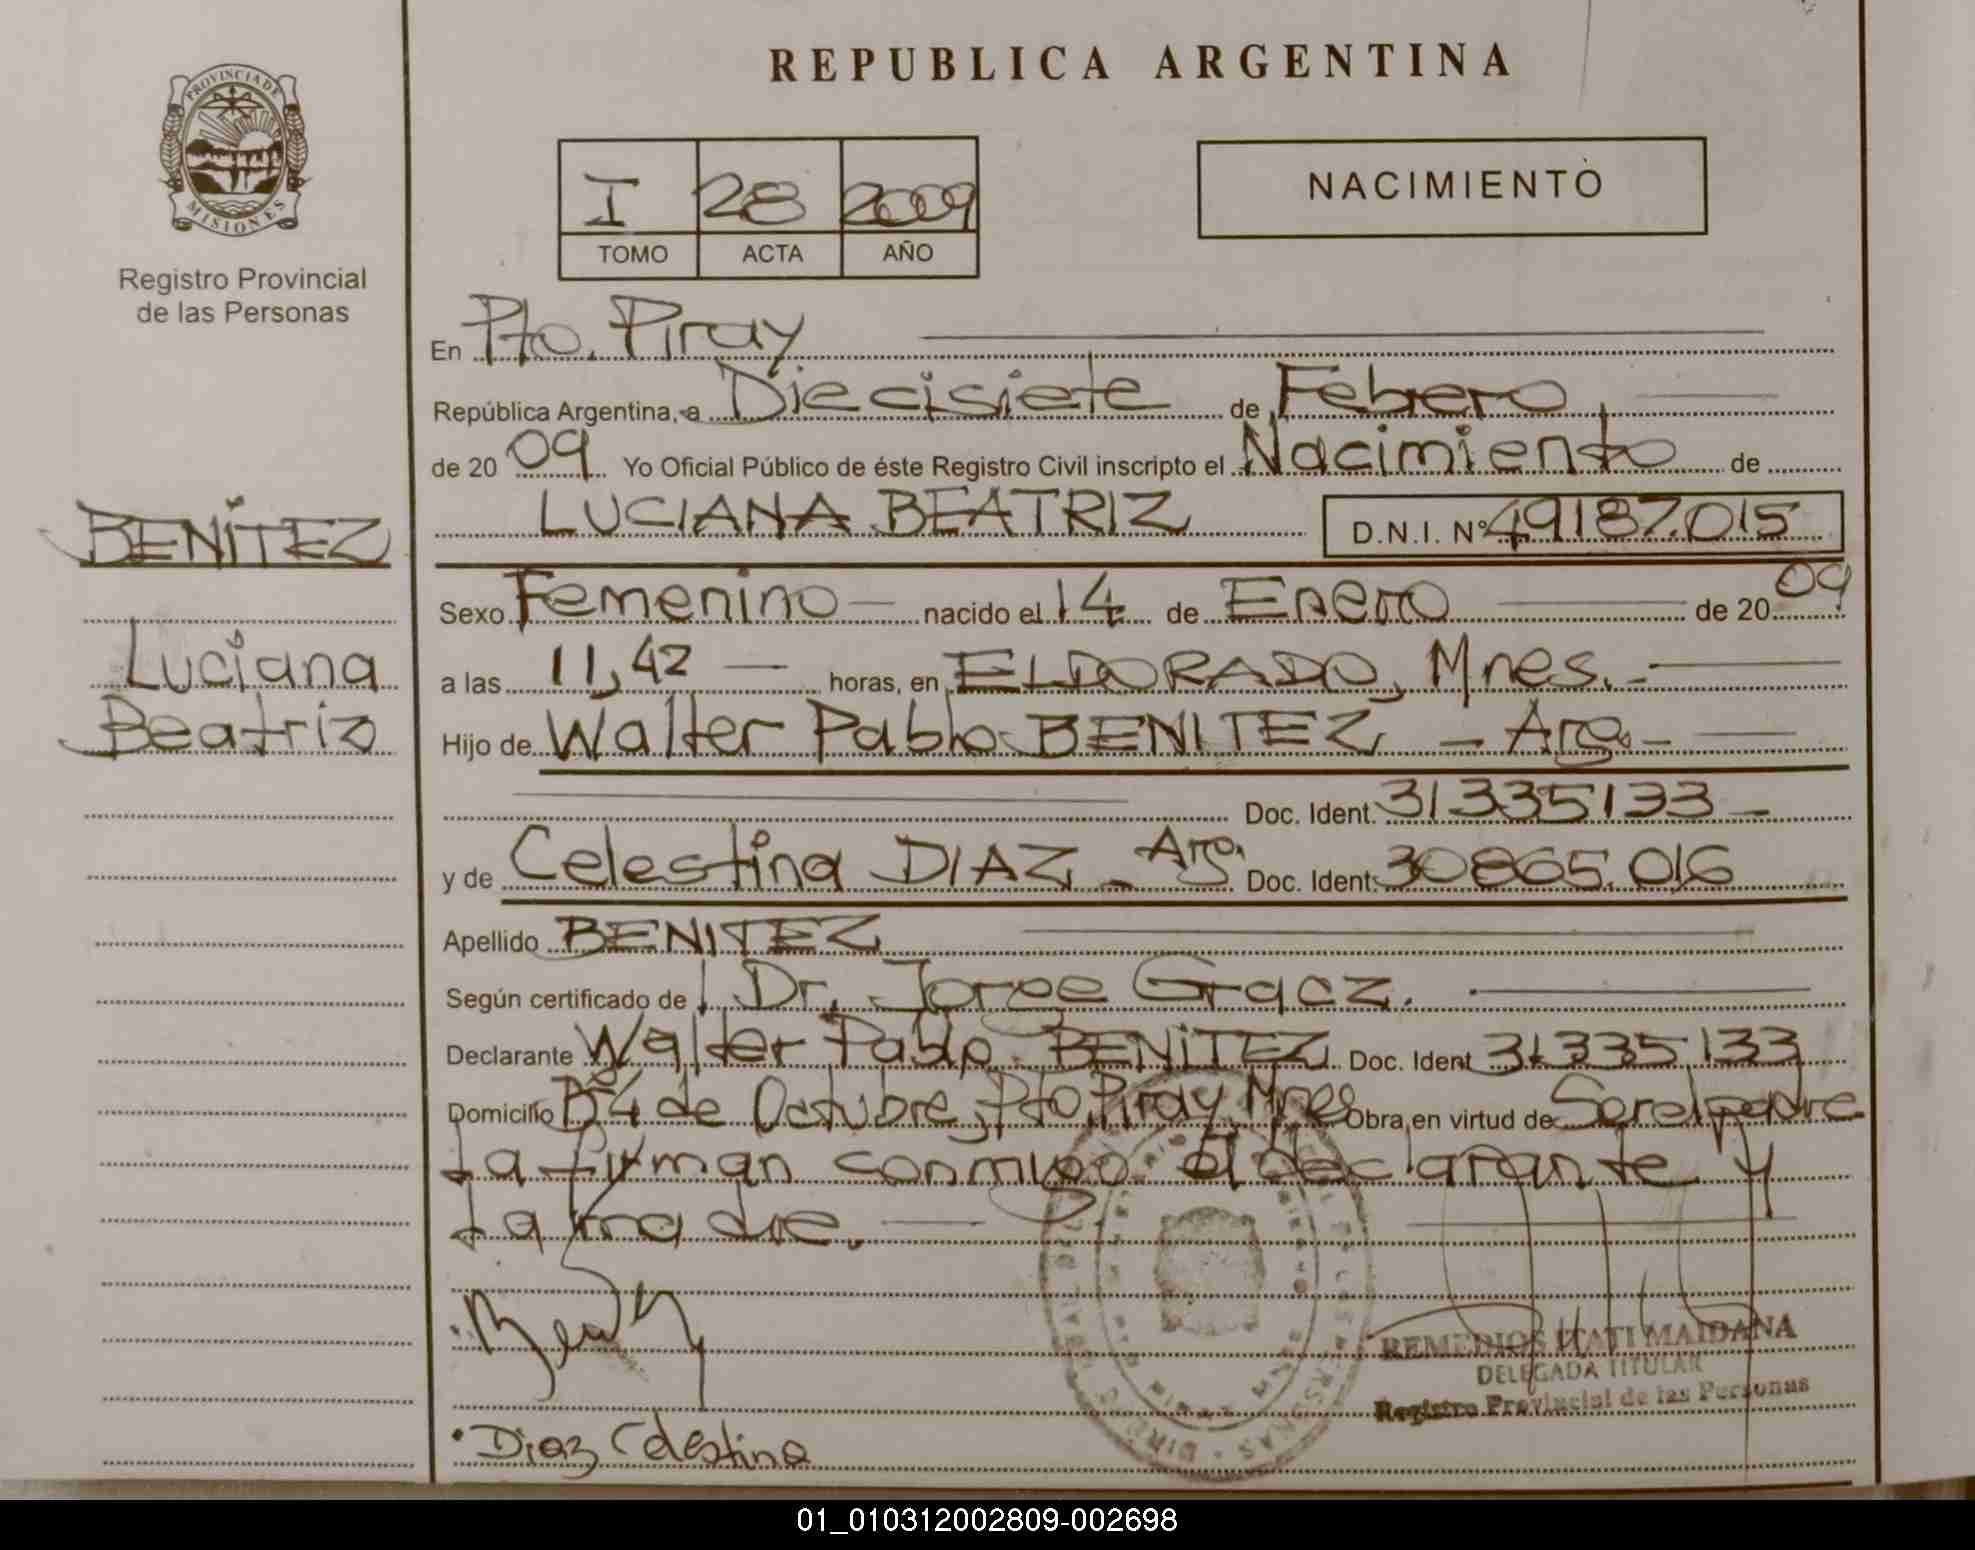 PROVINCIA DE
MISIONES
Registro Provincial
de las Personas
BENÍTEZ
Luciana
Beatriz
REPUBLICA ARGENTINA
I 28 2009
TOMO ACTA AÑO
NACIMIENTO
En Pto. Piray
República Argentina, a Diecisiete de Febrero
de 2009 Yo Oficial Público de éste Registro Civil inscripto el Nacimiento de
LUCIANA BEATRIZ D.N.I. Nº 49187.015
Sexo Femenino nacido el 14 de Enero de 2009
a las 11,42 horas, en ELDORADO, Mnes.
Hijo de Walter Pablo BENITEZ - Arg. -
Doc. Ident. 31.335133 -
y de Celestina DIAZ - Arg. Doc. Ident. 30865.016
Apellido BENITEZ
Según certificado de Dr. Jorge Gracz.
Declarante Walter Pablo BENÍTEZ Doc. Ident 31.335.133
Domicilio Bº 4 de Octubre, Pto Piray Mnes Obra en virtud de Ser el padre
La firman conmigo el declarante y
La madre.
REMEDIOS ITATI MAIDANA
DELEGADA TITULAR
Registro Provincial de las Personas
Diaz Celestina
01_010312002809-002698